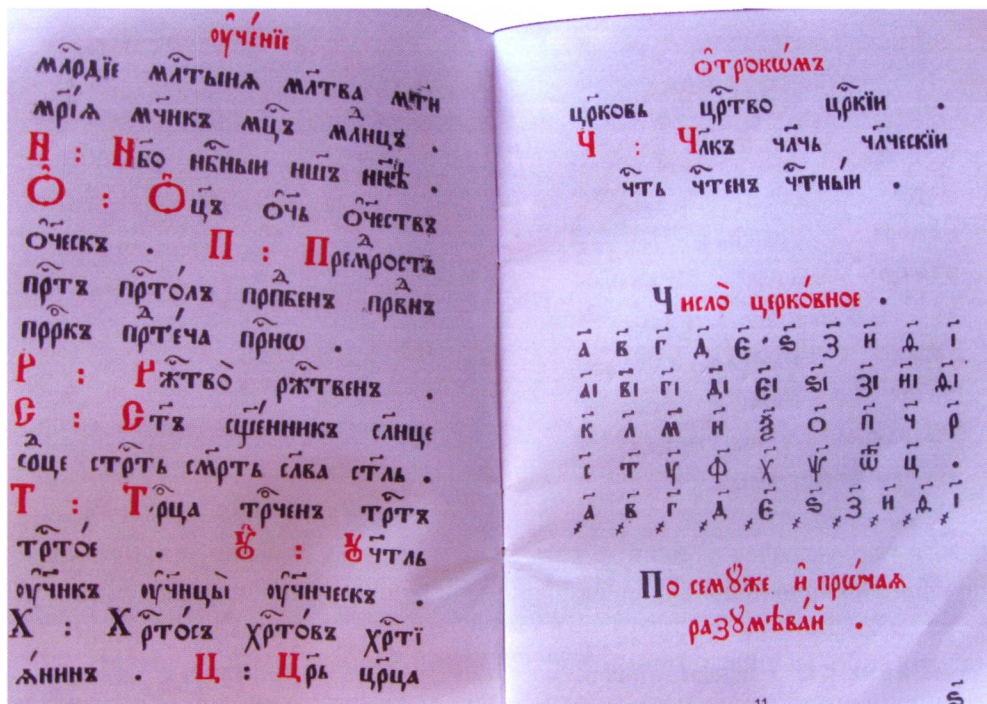 ᲂу҆че́нїе
мл҇рдїе мл҇тынѧ мл҃тва мт҃и
мр҃і́ѧ мч҃нкъ мц҇ъ млⷣнцъ .
Н : Нб҃о нб҇ный нш҃ъ нн҃ѣ .
Ѻ҆ : Ѻ҆ц҃ъ ѻ҆ч҃ь ѻ҆ч҃ествъ
ѻ҆ч҃ескъ . П : Премⷣрость
пр҇тъ пр҇то́лъ прпⷣбенъ прⷣвнъ
прⷪ҇ркъ прⷣте́ча пр҇нѡ .
Р : Рж҇тво̀ рж҇твенъ .
С : Ст҃ъ сщ҃е́нникъ сл҃нце
срⷣце стр҇ть см҃рть сл҃ва ст҃ль .
Т : Трⷪ҇ца трⷪ҇ченъ тр҇тъ
тр҇то́е . Ꙋ҆ : Ꙋ҆ч҃тль
ᲂу҆ч҃нкъ ᲂу҆ч҃нцы̀ ᲂу҆ч҃нческъ .
Х : Хр҇то́съ хр҇то́въ хр҇тї
ѧ́нинъ . Ц : Цр҃ь цр҃ца
ѻ҆трокѡ́мъ
цр҃ковь цр҇тво цр҇кїи .
Ч : Чл҃къ чл҃чь чл҃ческїи
чт҇ь чт҇енъ чт҇ны́й .
Число̀ церко́вное .
а҃ в҃ г҃ д҃ є҃ . ѕ҃ з҃ и҃ ѳ҃ і҃
а҃і в҃і г҃і д҃і є҃і ѕ҃і з҃і и҃і ѳ҃і
к҃ л҃ м҃ н҃ ѯ҃ ѻ҃ п҃ ч҃ р҃
с҃ т҃ ѵ҃ ф҃ х҃ ѱ҃ ѿ҃ ц҃ .
҂а҃ ҂в҃ ҂г҃ ҂д҃ ҂є҃ ҂ѕ҃ ҂з҃ ҂и҃ ҂ѳ҃ ҂і҃
По семꙋ́же и҆ прѡ́чаѧ
разꙋмѣва́й .
11 ѕ҃